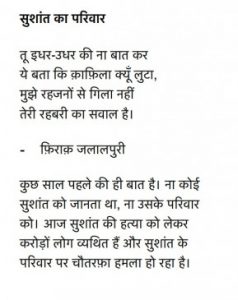 सुशांत का परिवार
तू इधर-उधर की ना बात कर
ये बता कि क़ाफ़िला क्यूँ लुटा,
मुझे रहजनों से गिला नहीं
तेरी रहबरी का सवाल है।
- फ़िराक़ जलालपुरी
कुछ साल पहले की ही बात है। ना कोई
सुशांत को जानता था, ना उसके परिवार
को। आज सुशांत की हत्या को लेकर
करोड़ों लोग व्यथित हैं और सुशांत के
परिवार पर चौतरफ़ा हमला हो रहा है।